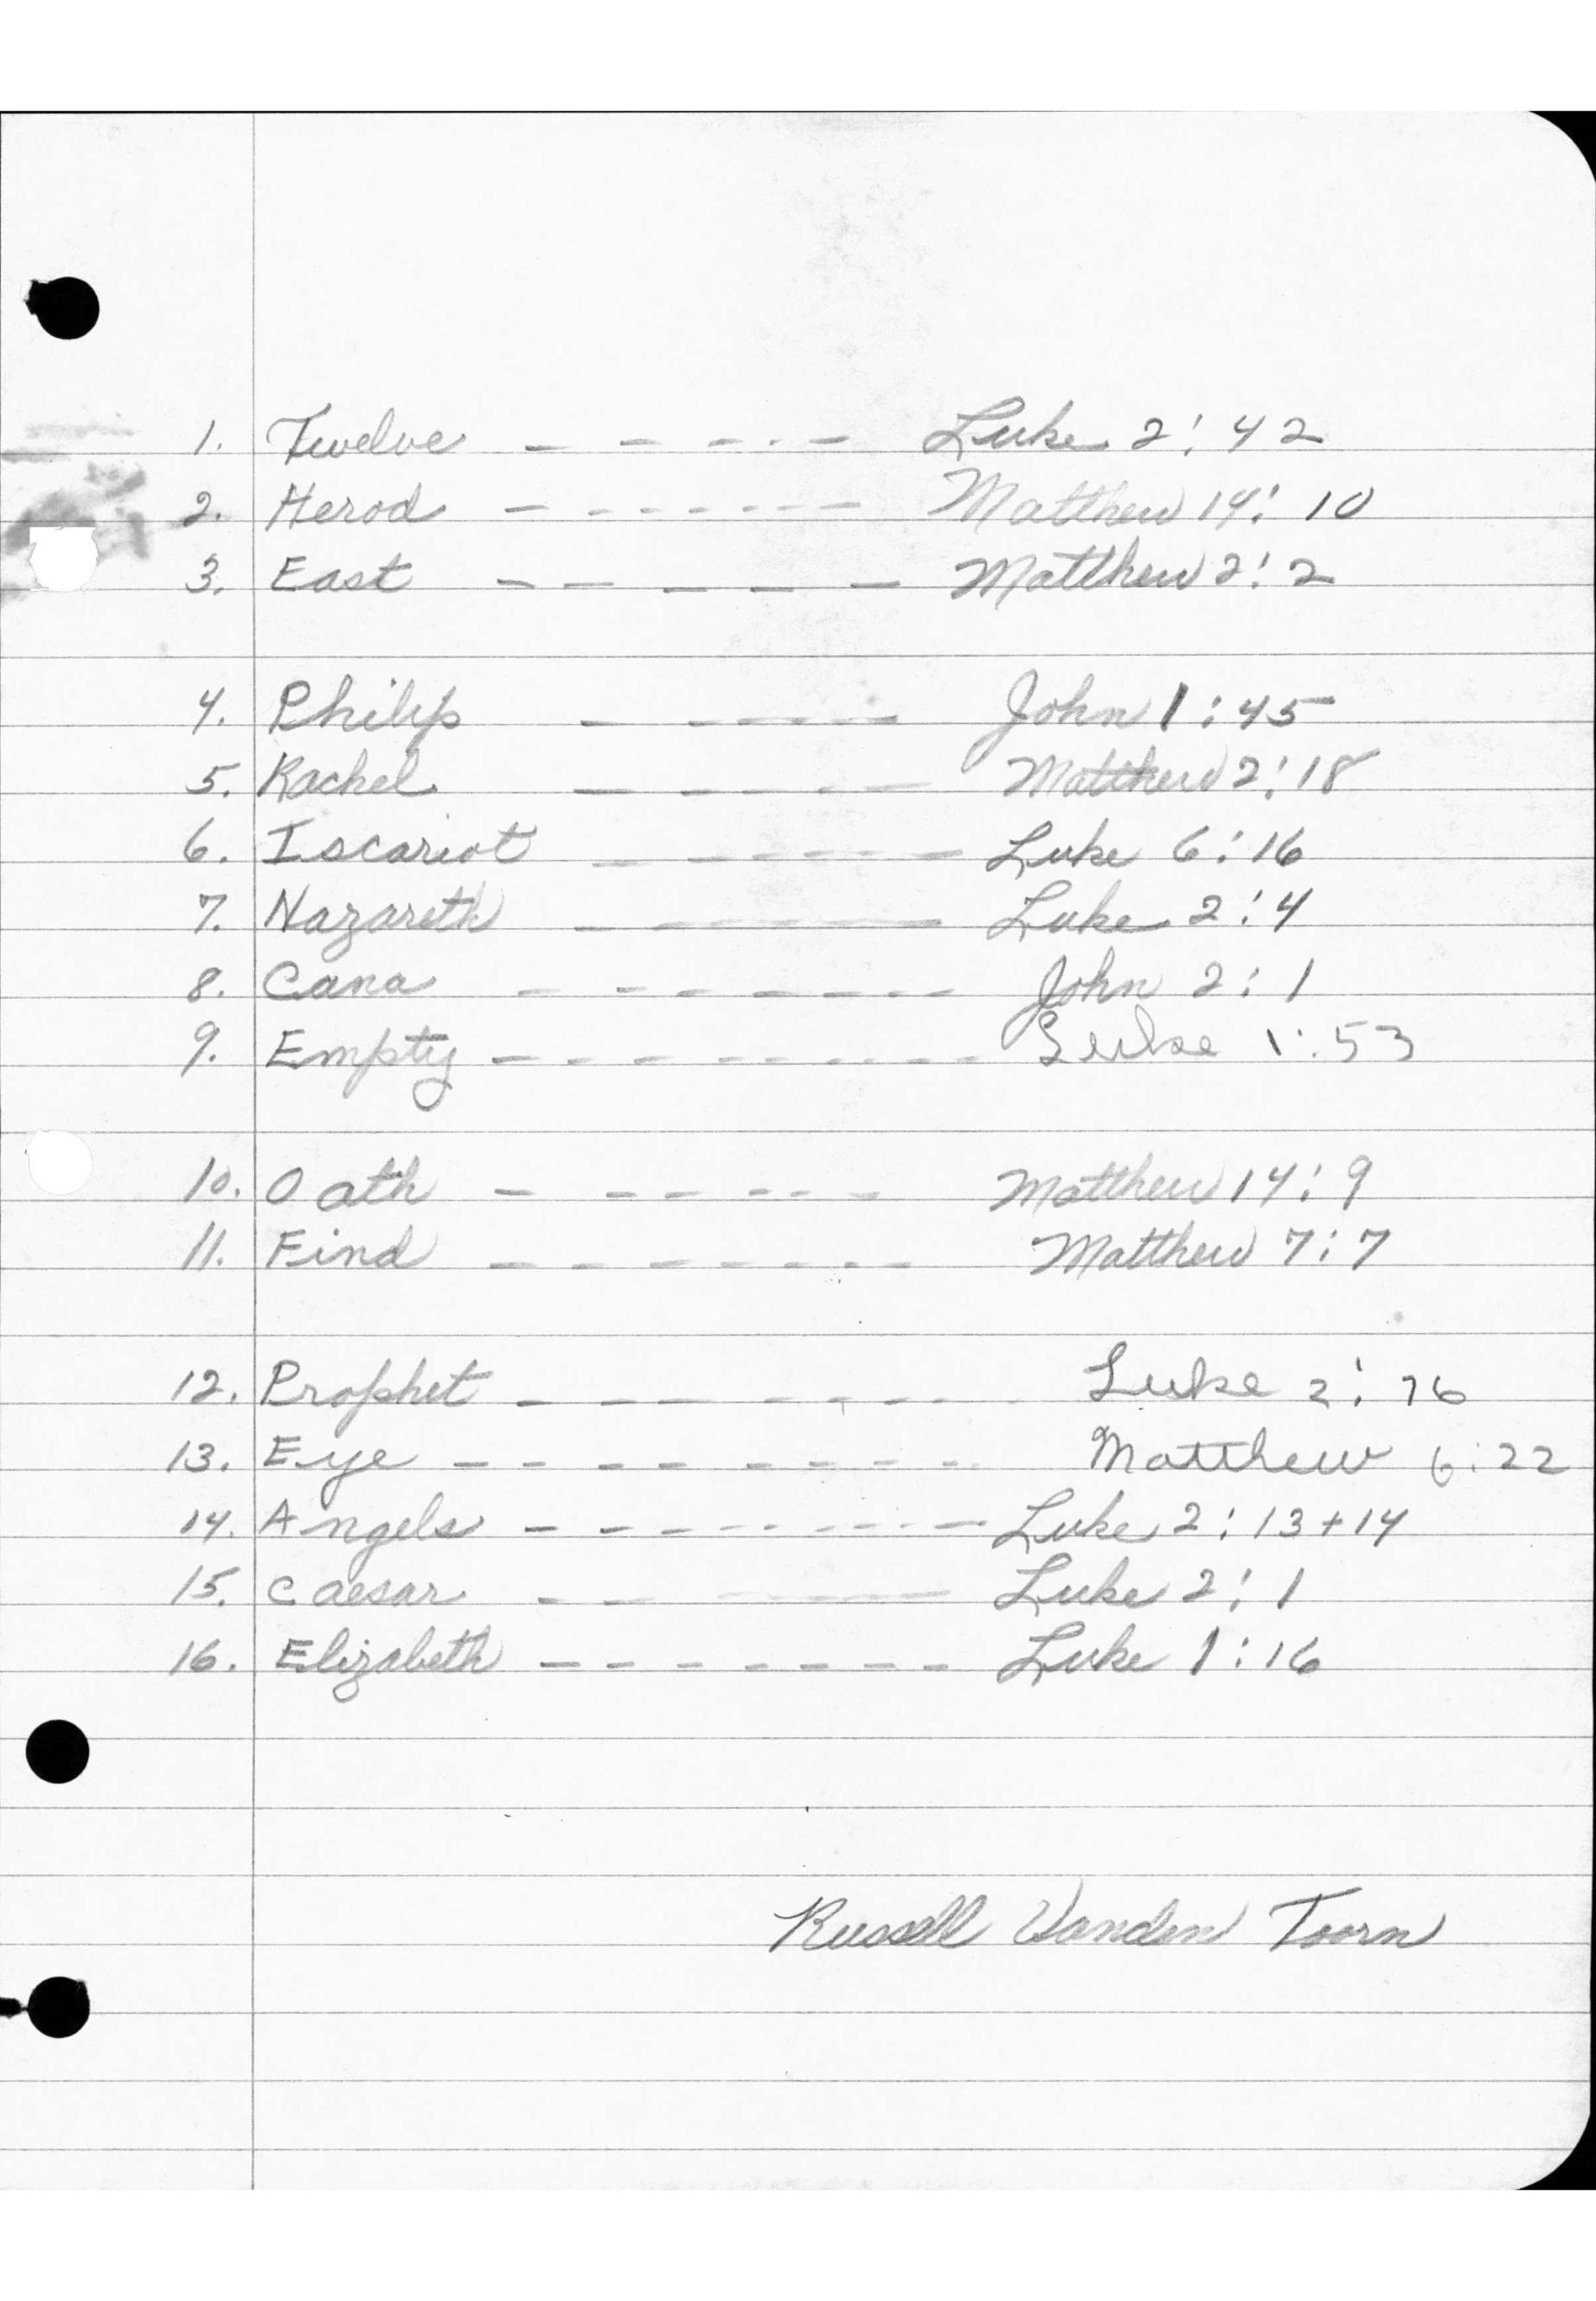 1. Twelve - - - - - Luke 2:42
2. Herod - - - - - - - Matthew 14:10
3. East - - - - - Matthew 2:2
4. Philip - - - - - John 1:45
5. Rachel - - - - - Matthew 2:18
6. Iscariot - - - - - - Luke 6:16
7. Nazareth - - - - - Luke 2:4
8. Cana - - - - - - - John 2:1
9. Empty - - - - - - - - - Luke 1:53
10. Oath - - - - - - - Matthew 14:9
11. Find - - - - - - - - Matthew 7:7
12. Prophet - - - - - - - - Luke 2:76
13. Eye - - - - - - - - - Matthew 6:22
14. Angels - - - - - - - - - Luke 2:13+14
15. Caesar - - - - - Luke 2:1
16. Elizabeth - - - - - - - Luke 1:16
Russell Vanden Toorn